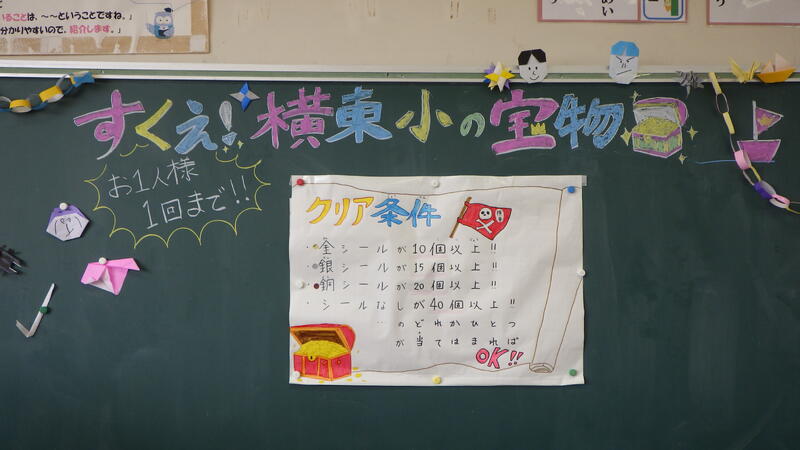 いることは、～～ということですね。」
分かりやすいので、紹介します。」
すくえ！横東小の宝物
お1人様
1回まで!!
クリア条件
・金シールが10個以上!!
・銀シールが15個以上!!
・銅シールが20個以上!!
・シールなしが40個以上!!
…のどれかひとつ
が当てはまれば
OK!!